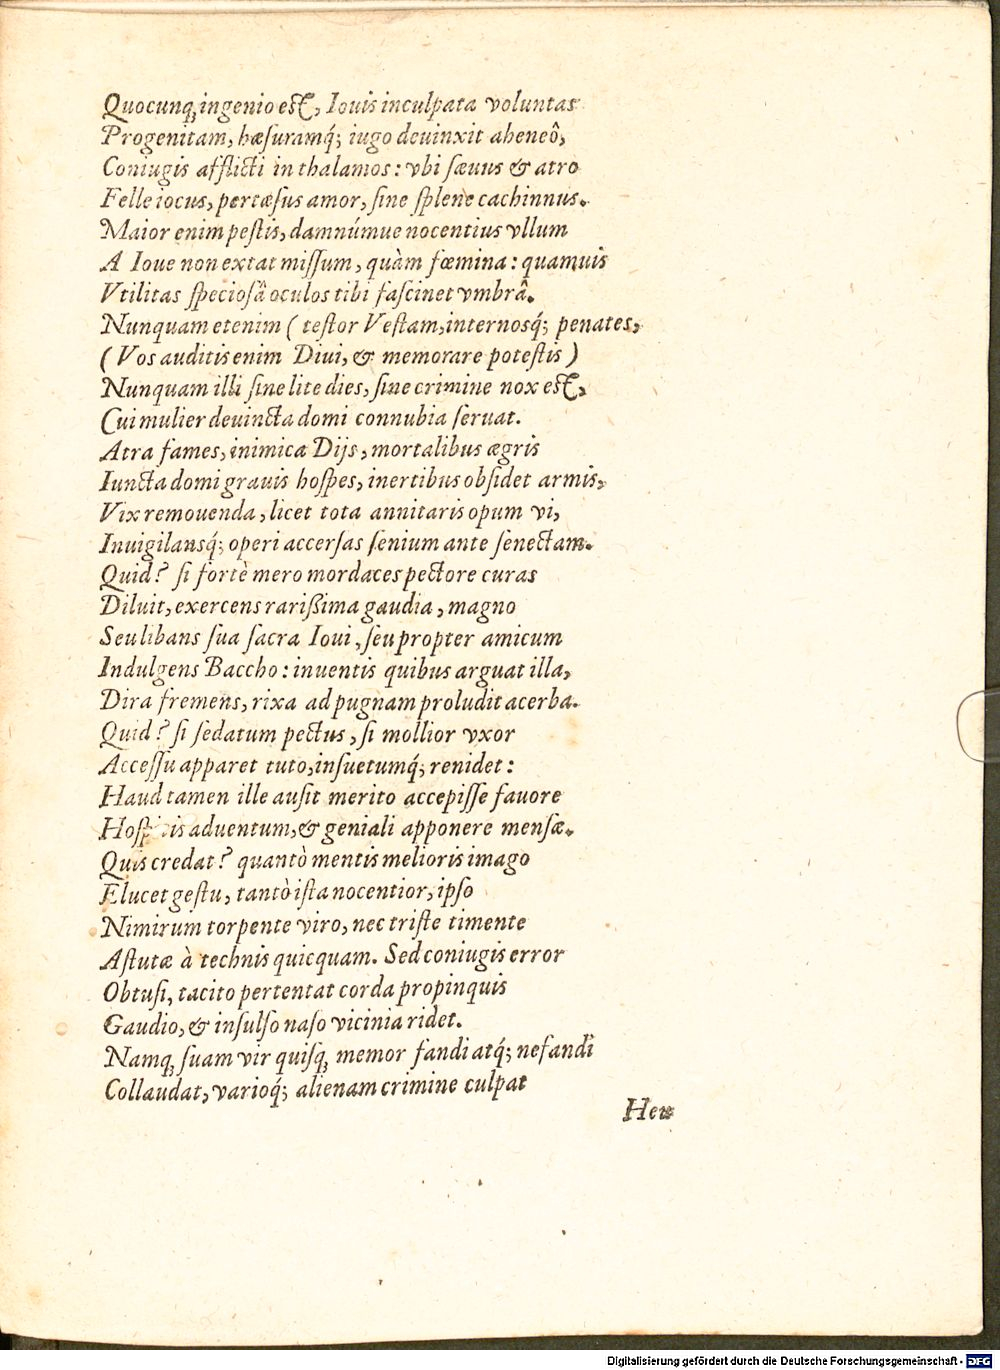 Quocunq; ingenio est, Iouis inculpata voluntas
Progenitam, hæsuramq́; iugo deuinxit aheneô,
Coniugis afflicti in thalamos: vbi sæuus & atro
Felle iocus, pertæsus amor, sine splene cachinnus.
Maior enim pestis, damnúmue nocentius vllum
A Ioue non extat missum, quàm fœmina: quamuis
Vtilitas speciosâ oculos tibi fascinet vmbrâ.
Nunquam etenim ( testor Vestam, internosq́; penates,
( Vos auditis enim Diui, & memorare potestis )
Nunquam illi sine lite dies, sine crimine nox est,
Cui mulier deuincta domi connubia seruat.
Atra fames, inimica Dijs, mortalibus ægris
Iuncta domi grauis hospes, inertibus obsidet armis,
Vix remouenda, licet tota annitaris opum vi,
Inuigilansq́; operi accersas senium ante senectam.
Quid? si fortè mero mordaces pectore curas
Diluit, exercens rarißima gaudia, magno
Seu libans sua sacra Ioui, seu propter amicum
Indulgens Baccho: inuentis quibus arguat illa,
Dira fremens, rixa ad pugnam proludit acerba.
Quid? si sedatum pectus, si mollior vxor
Accessu apparet tuto, insuetumq́; renidet:
Haud tamen ille ausit merito accepisse fauore
Hospitis aduentum, & geniali apponere mensæ.
Quis credat? quantò mentis melioris imago
Elucet gestu, tantò ista nocentior, ipso
Nimirum torpente viro, nec triste timente
Astutæ à technis quicquam. Sed coniugis error
Obtusi, tacito pertentat corda propinquis
Gaudio, & insulso naso vicinia ridet.
Namq; suam vir quisq; memor fandi atq́; nefandi
Collaudat, varioq́; alienam crimine culpat
Heu
Digitalisierung gefördert durch die Deutsche Forschungsgemeinschaft - DFG